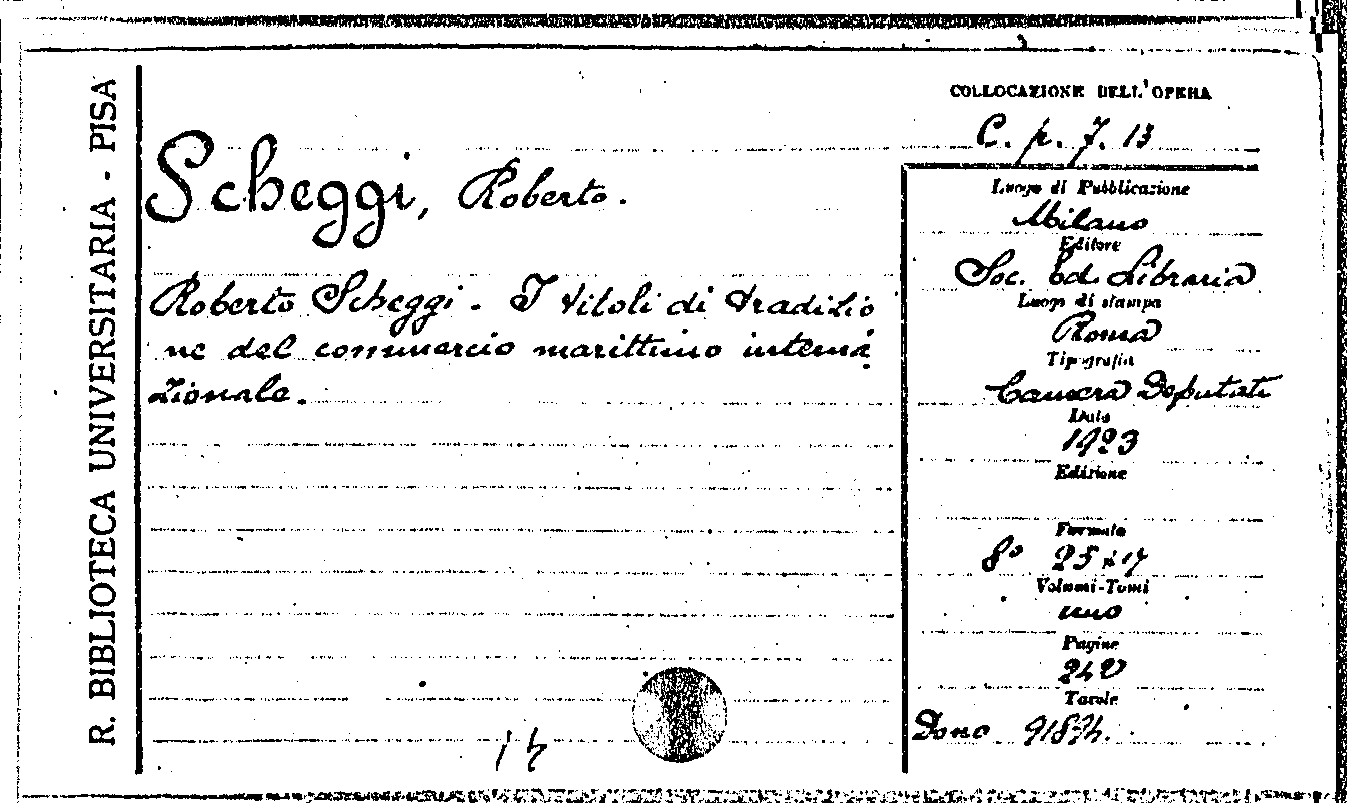 R. BIBLIOTECA UNIVERSITARIA - PISA
COLLOCAZIONE DELL'OPERA
C. p. 7. 13
Scheggi, Roberto.
Roberto Scheggi - I titoli di tradizio
ne del commercio marittimo interna
zionale.
Luogo di Pubblicazione
Milano
Editore
Soc. Ed. Libraria
Luogo di stampa
Roma
Tipografia
Camera Deputati
Data
1923
Edizione
Formato
8° 25x17
Volumi-Tomi
uno
Pagine
Tavole
Dono